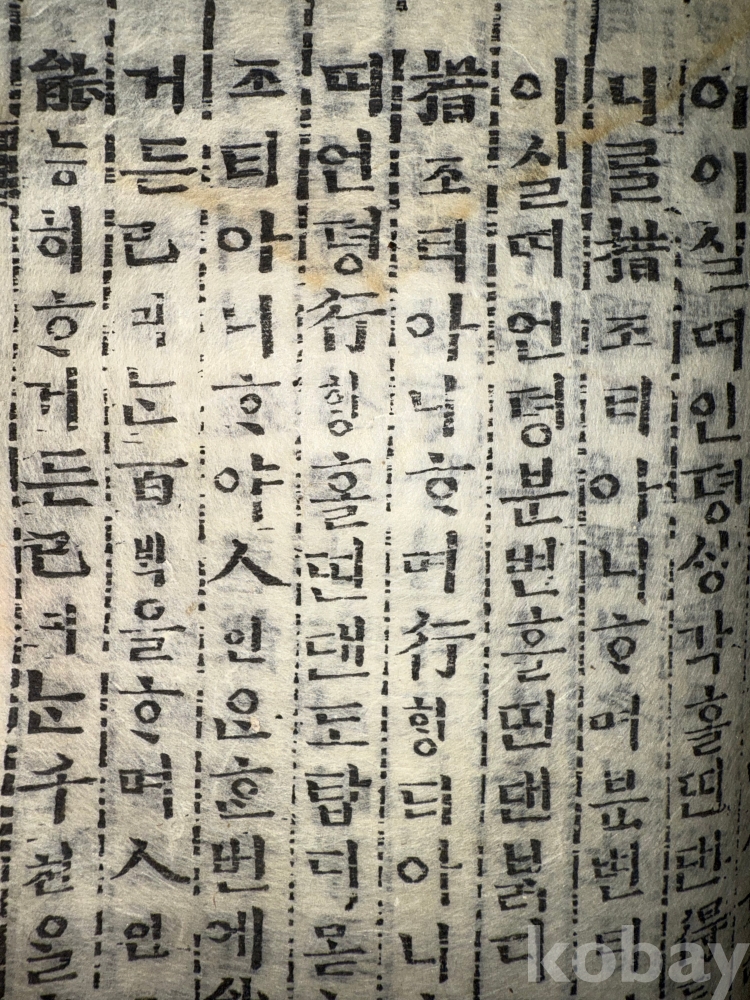 이이실띠언뎡ᄉᆡᆼ각홀띤댄得
니를措조티아니ᄒᆞ며분변티
이실띠언뎡분변홀띤댄ᄇᆞᆰ디
措조티아니ᄒᆞ며行ᄒᆡᆼ티아니
띠언뎡行ᄒᆡᆼ홀띤댄도탑디몯
조티아니ᄒᆞ야人인은ᄒᆞᆫ번에能
거든己긔ᄂᆞᆫ百ᄇᆡᆨ을ᄒᆞ며人인
能능히ᄒᆞ거든己긔ᄂᆞᆫ千쳔을
kobay